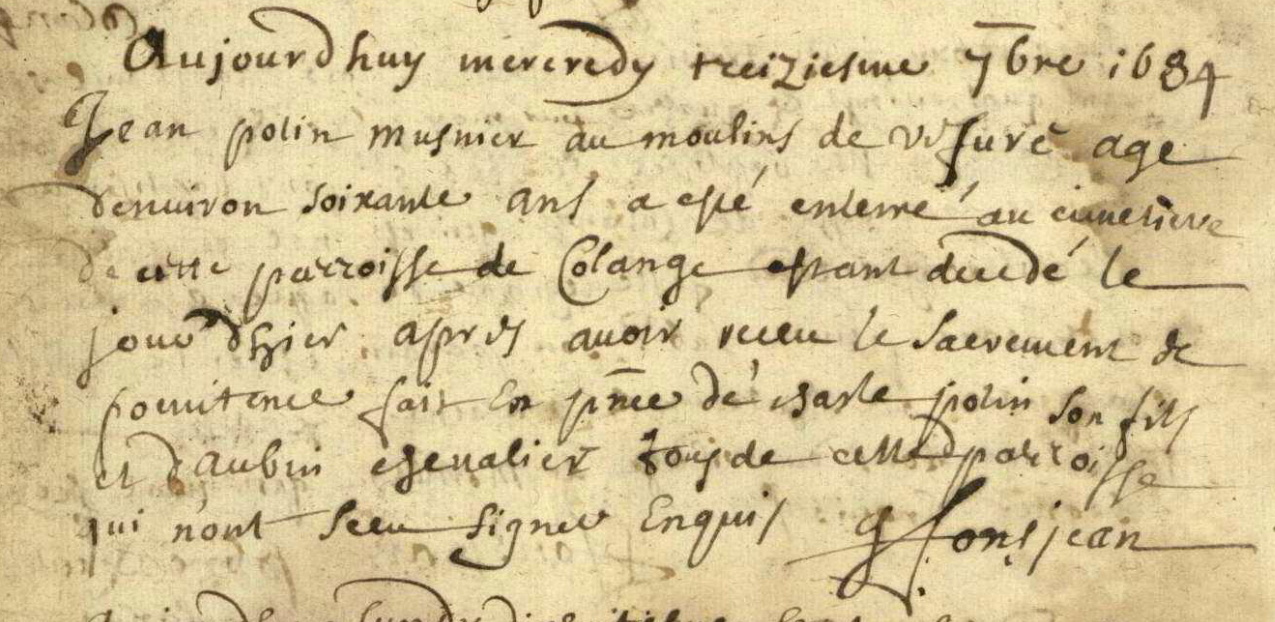 Aujourdhuy mercredy treiziesme 7bre 1684
Jean polin musnier au moulins de age
denuiron soixante ans a esté enterré au cimetiere
de cette parroisse de Colange estant decedé le
jour d'hier apres auoir receu le sacrement de
poenitence fait En pnce de charle polin son fils
et d'aubin cheualier tous de cette parroisse
qui n'ont sceu signer Enquis